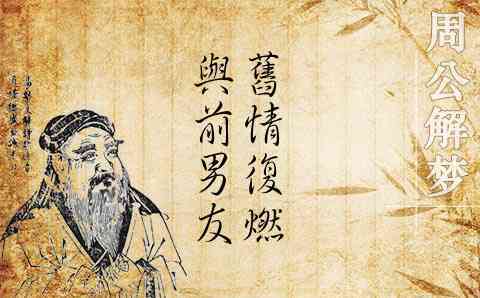 周公解梦
舊情復燃
與前男友